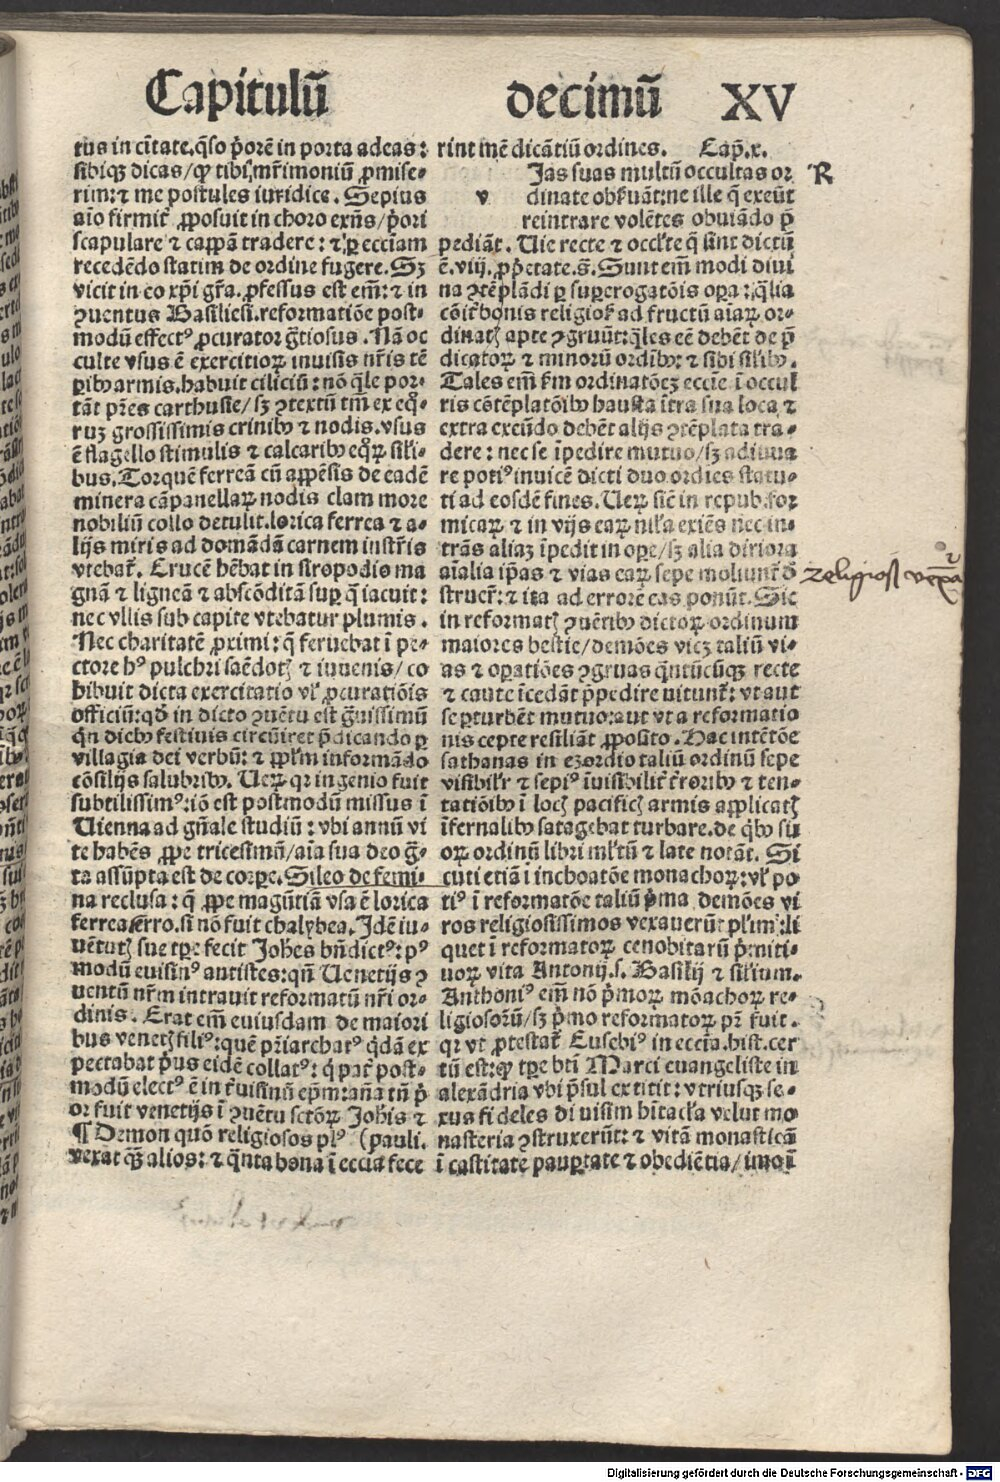 Capitulū decimū XV
tus in cītate. q̄so p̄orē in porta adeas:
sibiqꝫ dicas/ ꝙ tibi m̄rimoniū ꝓmise-
rim: ⁊ me postules iuridice. Sepius
aīo firmiť ꝓposuit in choro exn̄s/ p̄ori
scapulare ⁊ cappā tradere: ⁊ ꝑ ecciam
recedēdo statim de ordine fugere. Sꝫ
vicit in eo xp̄i gr̄a. ꝓfessus est em̄: ⁊ in
ꝯuentus Basiliesi. reformatiōe post-
modū effectꝰ ꝓcurator gr̄tiosus. Nā oc
culte vsus ē exercitioꝝ inuisis nr̄is tē
ꝑibꝰ armis. habuit ciliciū: nō q̄le por-
tāt pr̄es carthusie/ sꝫ ꝯtextū tm̄ ex eq̄-
ruꝫ grossissimis crinibꝰ ⁊ nodis. vsus
ē flagello stimulis ⁊ calcaribꝰ eq̄ꝝ sili-
bus. Torquē ferreā cū appēsis de eadē
minera cāpanellaꝝ nodis clam more
nobiliū collo detulit. lorica ferrea ⁊ a-
lijs miris ad domādā carnem instr̄is
vtebať. Crucē hēbat in stropodio ma
gnā ⁊ ligneā ⁊ abscōditā suꝑ q̄ iacuit:
nec vllis sub capite vtebatur plumis.
Nec charitatē ꝓximi: q̄ feruebat ī pe-
ctore hꝰ pulchri saēdotꝭ ⁊ iuuenis/ co
hibuit dicta exercitatio vl' ꝓcuratiōis
officiū: qd̄ in dicto ꝯuētu est gr̄uissimū
qn̄ diebꝰ festiuis circūiret p̄dicando ꝑ
villagia dei verbū: ⁊ ꝓpl'm informādo
cōsilijs salubribꝰ. Ueꝝ qr ingenio fuit
subtilissimꝰ: iō est postmodū missus ī
Uienna ad gn̄ale studiū: vbi annū vi
te habēs ꝓpe tricesimū/ aīa sua deo g̃-
ta assūpta est de corꝑe. Sileo de femi-
na reclusa: q̄ ꝓpe magūtiā vsa ē lorica
ferrea ferro. si nō fuit chalybea. Idē iu-
uētutꝭ sue tꝑe fecit Joh̄es bn̄dictꝰ: pꝰ
modū euisinꝰ antistes: qn̄ Uenetijs ꝯ
uentū nr̄m intrauit reformatū nr̄i or-
dinis. Erat em̄ euiusdam de maiori
bus venetꝭ filiꝰ: quē pr̄iarchatꝰ q̄dā ex
pectabat p̄us eidē collatꝰ: q̄ pat̄ post-
modū electꝰ ē in ťuisinū ep̄m: an̄a tn̄ p̄
or fuit venetijs ī ꝯuētu sctōꝝ Joh̄is ⁊
¶ Demon quō religiosos plꝰ (pauli.
vexat qꝫ alios: ⁊ q̄nta bona ī eccia fece
rint mē dicātiū ordines. Cap̄. x.
v Jas suas multū occultas or
dinate obẜuāt: ne ille q̄ exeūt
reintrare volētes obuiādo p̄
pediāt. Uie recte ⁊ occl'te q̄ sint dictū
ē. viij. ꝓpetate. s̄. Sunt em̄ modi diui
na ꝯtēplādi ꝑ suꝑerogatōis oꝑa: q̄lia
cōiť bonis religioẜ ad fructū aīaꝝ or-
dinatꝭ apte ꝯgruūt: q̄les eē debēt de p̄
dicatoꝝ ⁊ minorū ordībꝰ: ⁊ sibi silibꝰ.
Tales em̄ ẜm ordinatōeꝫ eccie ī occul
tis cōtēplatōibꝰ hausta ītra sua loca ⁊
extra exeūdo debēt alijs ꝯtēplata tra-
dere: nec se īpedire mutuo/ sꝫ adiuua
re potiꝰ inuicē dicti duo ordies statu-
ti ad eosdē fines. Ueꝝ sic̄ in repub. for
micaꝝ ⁊ in vijs eaꝝ nil'a exiēs nec in-
trās aliaꝫ īpedit in oꝑe/ sꝫ alia diriora
aīalia ip̄as ⁊ vias eaꝝ sepe moliunť d̄
strueř: ⁊ ita ad errorē eas ponūt. Sic
in reformatꝭ ꝯuētibꝰ dictoꝝ ordinum
maiores bestie/ demōes vicꝫ taliū vi-
as ⁊ oꝑatiōes ꝯgruas q̄ntūcūqꝫ recte
⁊ caute īcedāt p̄pedire nitunť: vt aut
se ꝑturbēt mutuo: aut vt a reformatio
nis cepte resiliāt ꝓposito. Hac intētōe
sathanas in exordio taliū ordinū sepe
visibilř ⁊ sepiꝰ īuisibiliť ťroribꝰ ⁊ ten-
tatiōibꝰ ī locꝭ pacificꝭ armis applicatꝭ
īfernalibꝰ satagebat turbare. de q̄bꝰ su
oꝝ ordinū libri ml'tū ⁊ late notāt. Si
cuti etiā ī inchoatōe monachoꝝ: vl' po
tiꝰ ī reformatōe taliū p̄ma demōes vi
ros religiosissimos vexauerūt pl'im: li
quet ī reformatoꝝ cenobitarū p̄miti-
uoꝝ vita Antonij. s. Basilij ⁊ silium.
Anthoniꝰ em̄ nō p̄moꝝ mōachoꝝ re-
ligiosorū/ sꝫ p̄mo reformatoꝝ pr̄ fuit.
qr vt ꝓtestať Eusebiꝰ in eccīa. hist. cer
tū est: ꝙ tꝑe bt̄i Marci euangeliste in
alexādria vbi p̄sul extitit: vtriusqꝫ se-
xus fideles diuisim hītacl'a velut mo
nasteria ꝯstruxerūt: ⁊ vitā monasticā
ī castitate pauꝑtate ⁊ obediētia/ imo ī
R
Digitalisierung gefördert durch die Deutsche Forschungsgemeinschaft - DFG